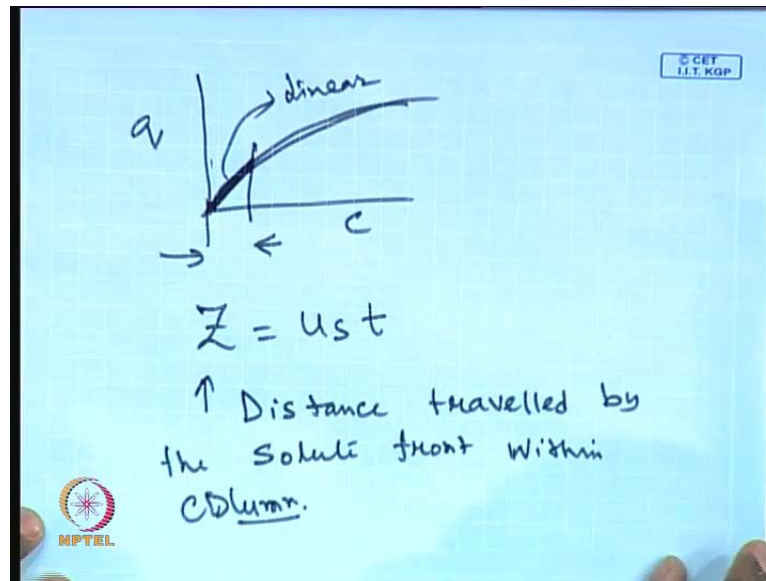 © CET
I.I.T. KGP
Linear
q
C
Z = ust
↑ Distance travelled by
the Solute front within
column.
NPTEL